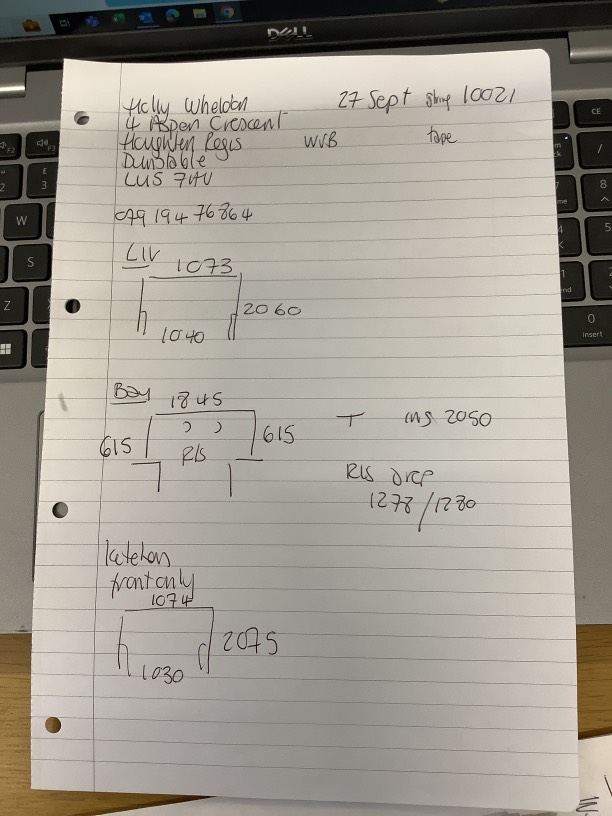 Holly Wheldon 27 Sept string 10021
4 Aspen Crescent
Houghton Regis WVB tape
Dunstable
LU5
079 194 76864
LIV
1073
2060
1040
Bay
1845
615 615 T ins 2050
R/S
R/S DROP
1278/1280
kitchen
front only
1074
2075
1030
DELL